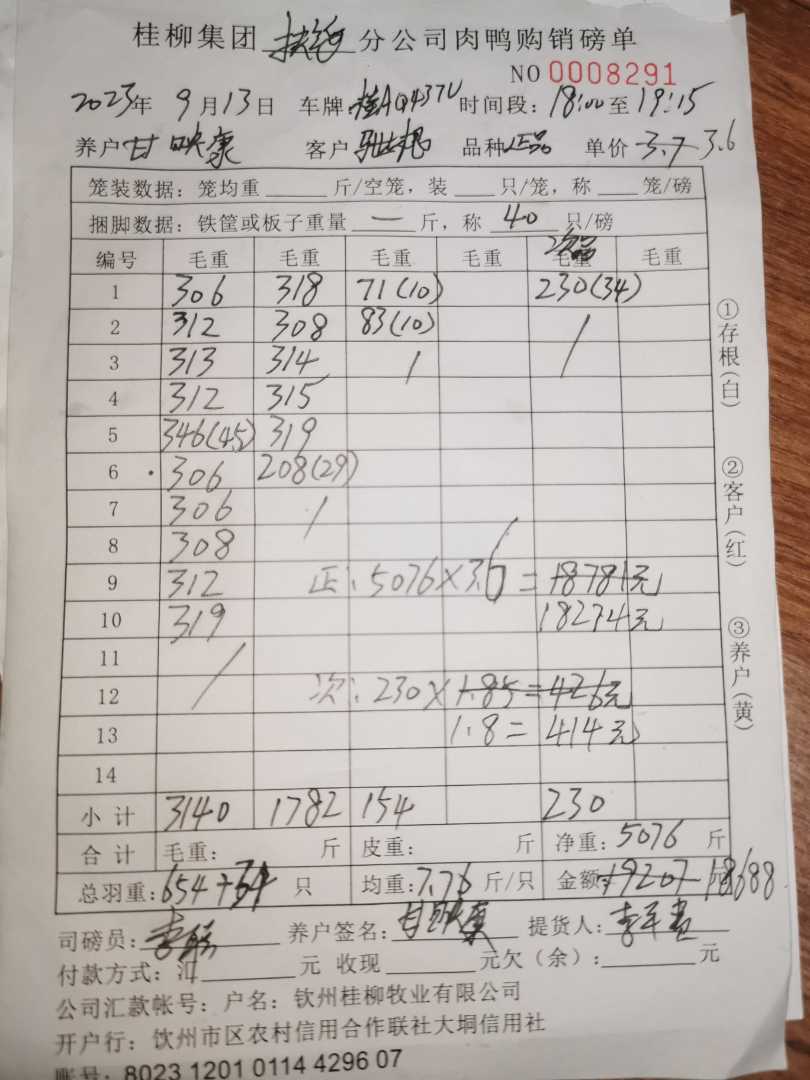 桂柳集团 扶绥 分公司肉鸭购销磅单
NO 0008291
2023年 9月13日 车牌:桂AQ437U 时间段:18:00至19:15
养户 甘映康 客户 品种 正品 单价 3.7 3.6
笼装数据:笼均重____斤/空笼,装___只/笼,称___笼/磅
捆脚数据:铁筐或板子重量 — 斤,称 40 只/磅
次品
编号 毛重 毛重 毛重 毛重 毛重 毛重
1 306 318 71(10) 230(34)
2 312 308 83(10) /
3 313 314 /
4 312 315
5 346(45) 319
6 306 208(29)
7 306 /
8 308
9 312 正:5076×3.6=18781元
10 319 18274元
11 /
12 次:230×1.85=426元
13 1.8=414元
14
小计 3140 1782 154 230
合计 毛重: 斤 皮重: 斤 净重:5076 斤
总羽重:654+34 只 均重:7.76 斤/只 金额:19207 18688
司磅员: 养户签名:甘映康 提货人:
付款方式:汇______元 收现______元欠(余):______元
公司汇款帐号:户名:钦州桂柳牧业有限公司
开户行:饮州市区农村信用合作联社大垌信用社
账号:8023 1201 0114 4296 07
①存根(白)
②客户(红)
③养户(黄)